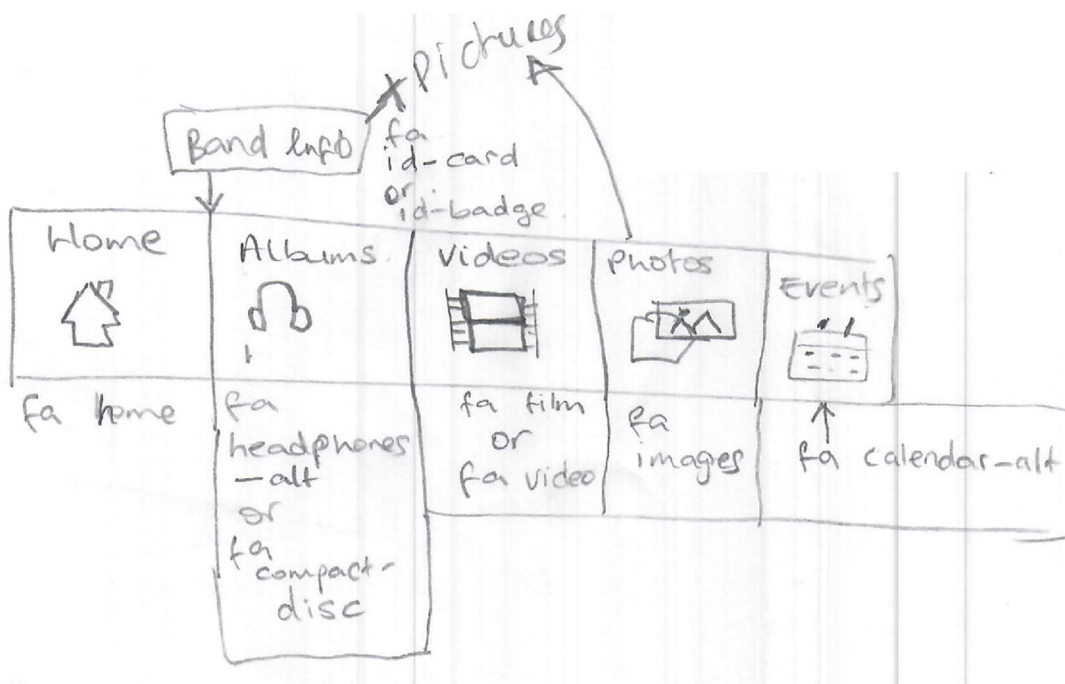 Pictures
Band Info
fa
id-card
or
id-badge
Home
Albums
Videos
Photos
Events
fa home
fa
headphones
-alt
or
fa
compact-
disc
fa film
or
fa video
fa
images
fa calendar-alt